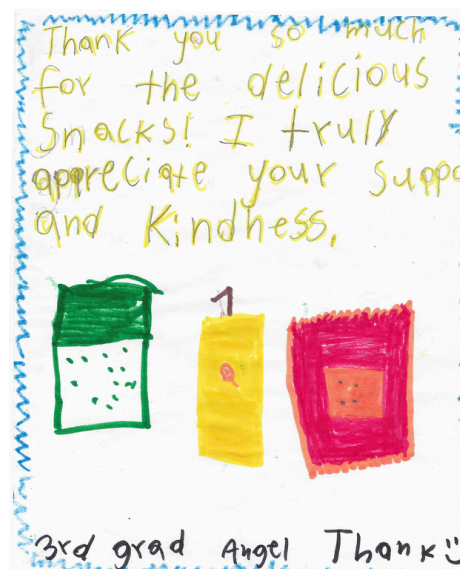 Thank you so much
for the delicious
Snacks! I truly
appreciate your suppo
and Kindness.
3rd grad Angel Thank